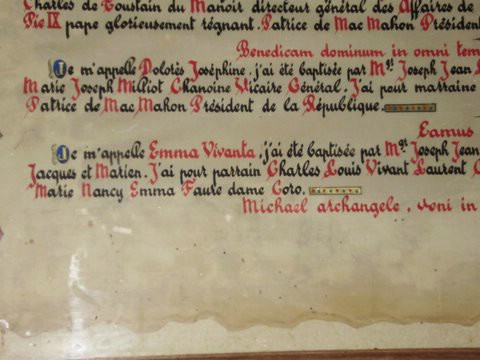 Charles de Toustain du Manoir directeur général des Affaires de
Pie IX pape glorieusement régnant. Patrice de Mac Mahon Présiden
Benedicam dominum in omni tem
Je m'appelle Dolorès Joséphine. j'ai été baptisée par Mgr Joseph Jean
Marie Joseph Milliot Chanoine Vicaire Général. J'ai pour marraine
Patrice de Mac Mahon Président de la République.
Eamus
Je m'appelle Emma Vivanta. j'ai été baptisée par Mgr Joseph Jean
Jacques et Marien. J'ai pour parrain Charles Louis Vivant Laurent
Marie Nancy Emma Faule dame Coro.
Michael archangele, veni in